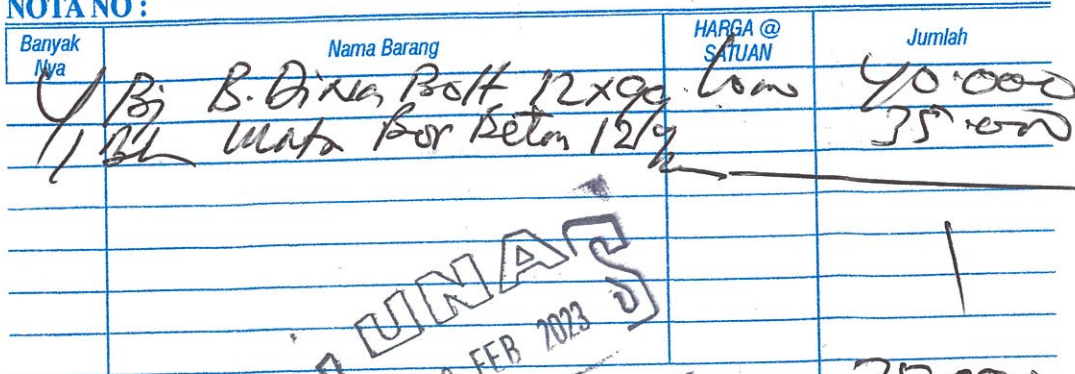 NOTA NO :
Banyak Nya Nama Barang HARGA @ SATUAN Jumlah
4 Bj B. Dina Bolt 12x99 40.000
1 Bh Mata Bor Beton 12 35.000
LUNAS
FEB 2023